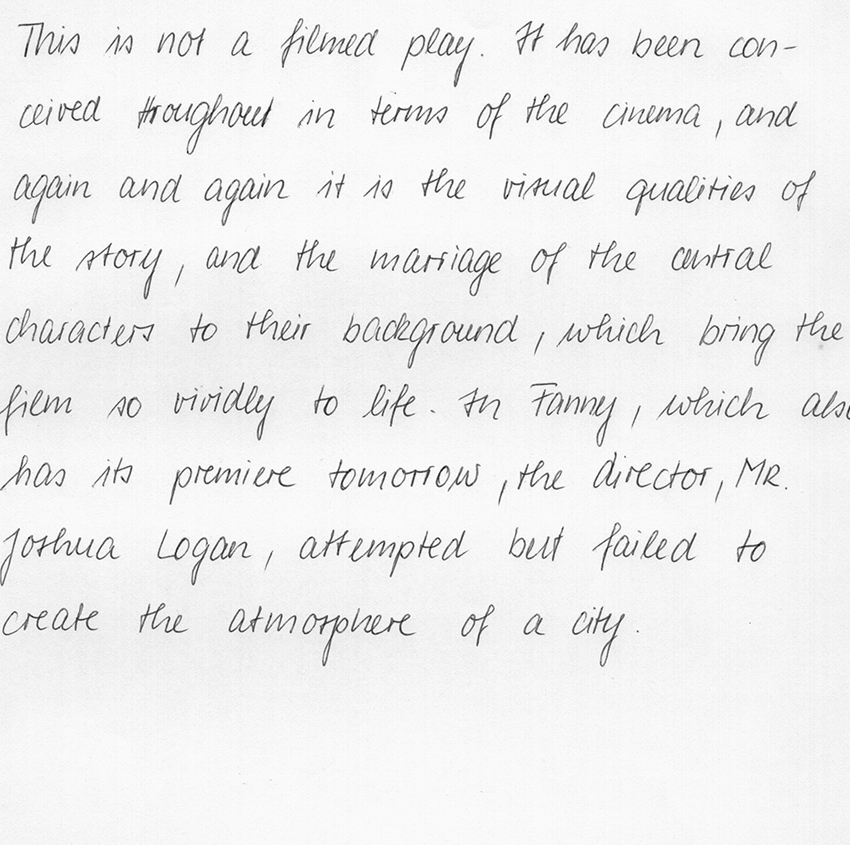 This is not a filmed play. It has been con-
ceived throughout in terms of the cinema, and
again and again it is the visual qualities of
the story, and the marriage of the central
characters to their background, which bring the
film so vividly to life. In Fanny, which also
has its premiere tomorrow, the director, Mr.
Joshua Logan, attempted but failed to
create the atmosphere of a city.